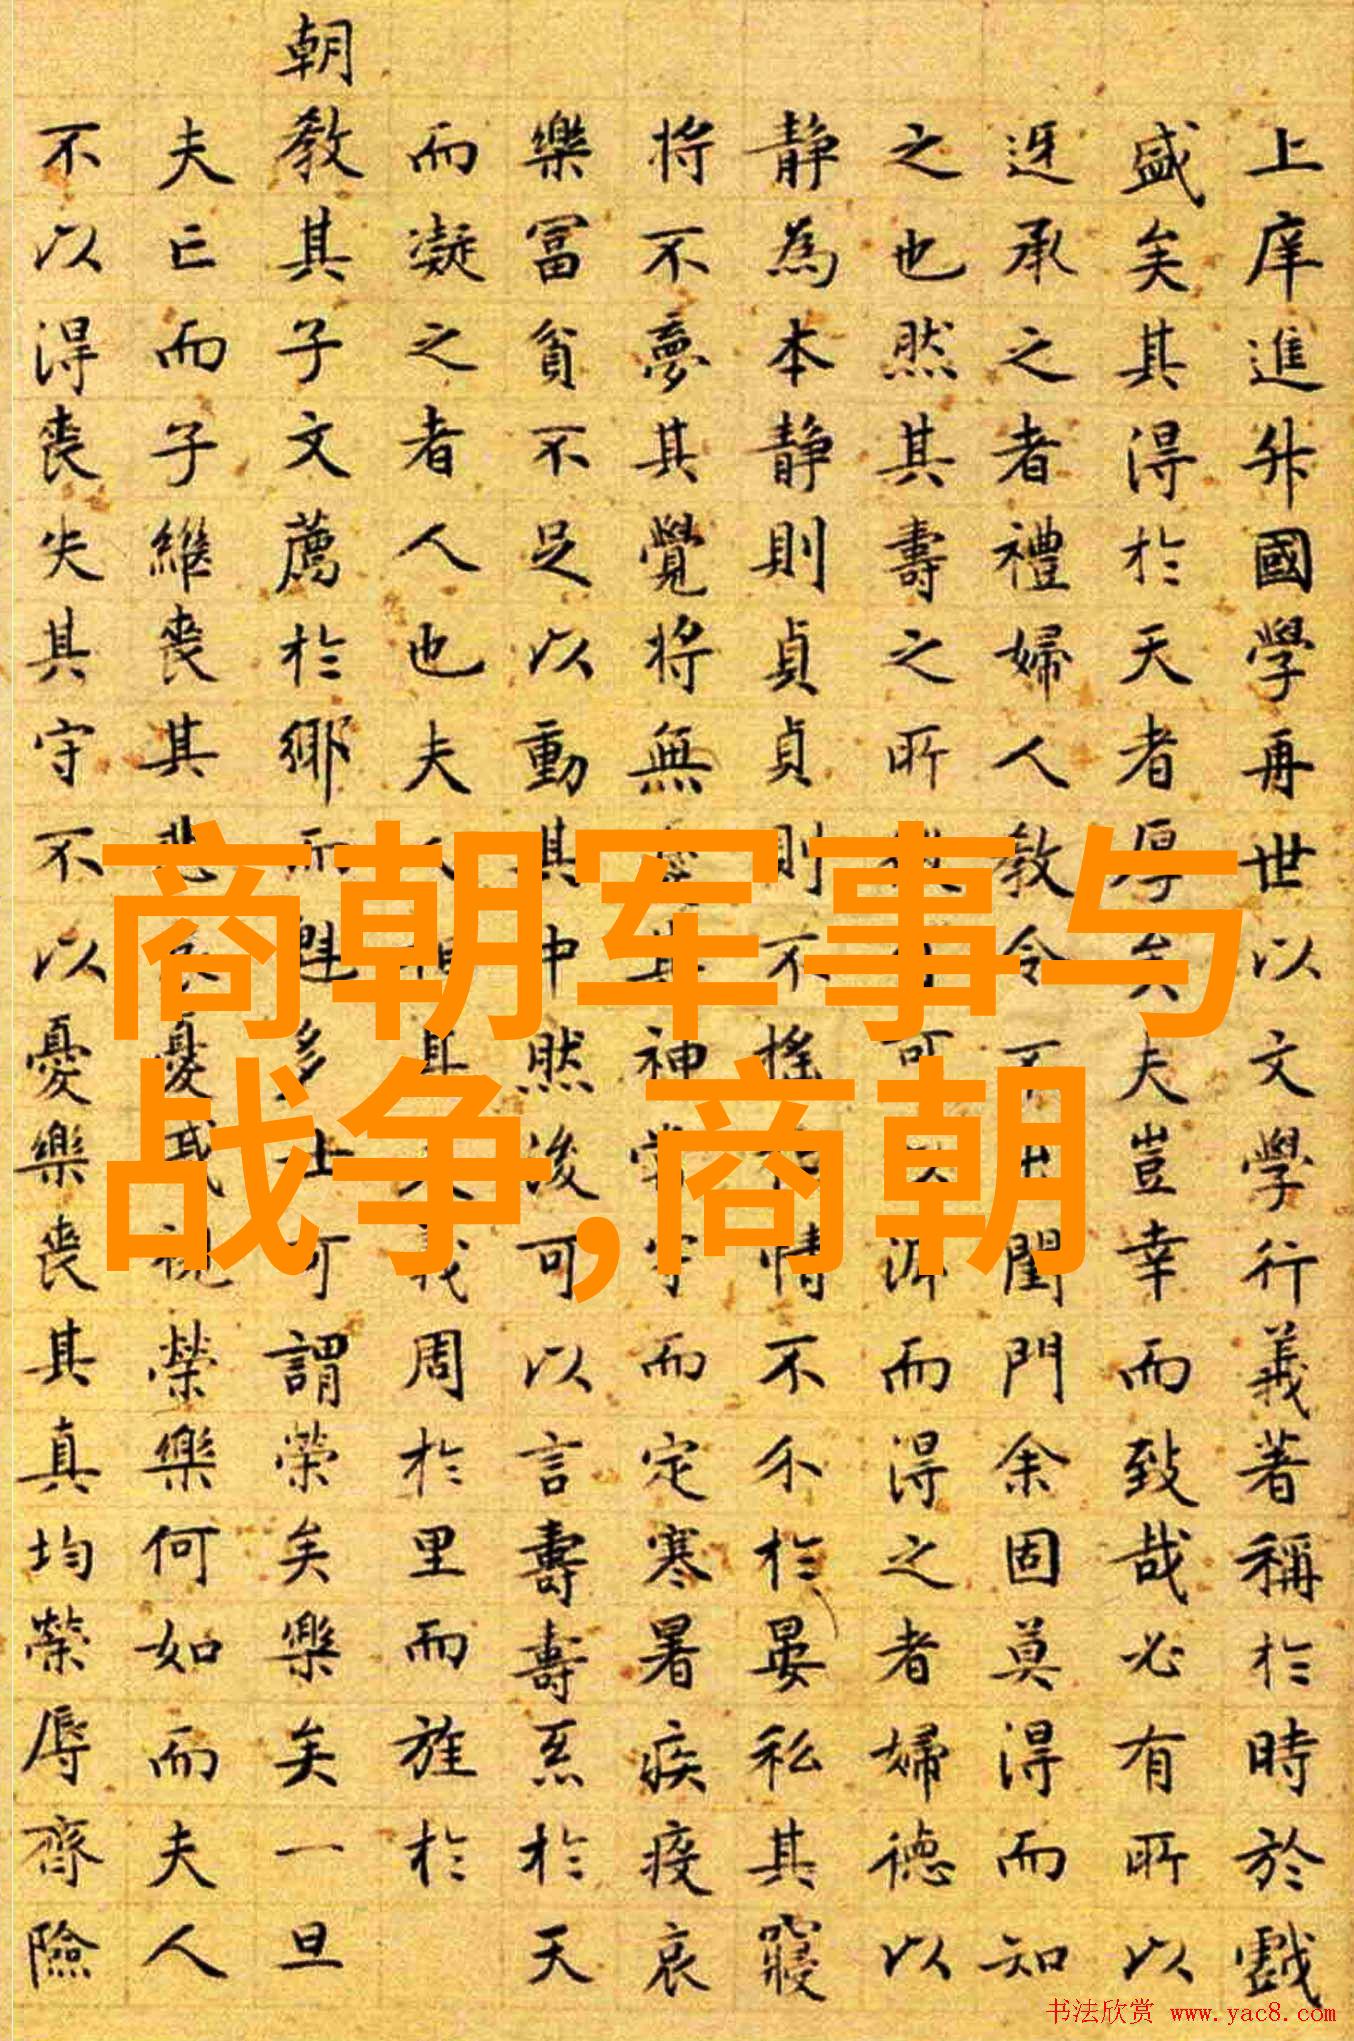 上庠進升國學再世以文學行義著稱於時於戲
盛矣其得於天者厚矣夫豈幸而致哉必有所以
迓承之者禮婦人教令不出閨門余固莫得而知
之也然其壽之所可而得之者婦德以
静為本静則貞貞則不搖情不介於晏私其寢
将不夢其覺将無其神常守而定寒暑疾疫哀
樂冨貧不足以動其中然後可以言壽壽於天
而凝之者人也夫人相其夫義周於里而旌於
朝教其子文薦於鄉而魁多士可謂榮矣樂矣一旦
夫亡而子繼喪其悲哀憂戚視榮樂何如而夫人
不以得喪失其守不以憂樂喪其真均榮辱齊險
商朝军事与
战争,商朝
书法欣赏 www.yac8.com